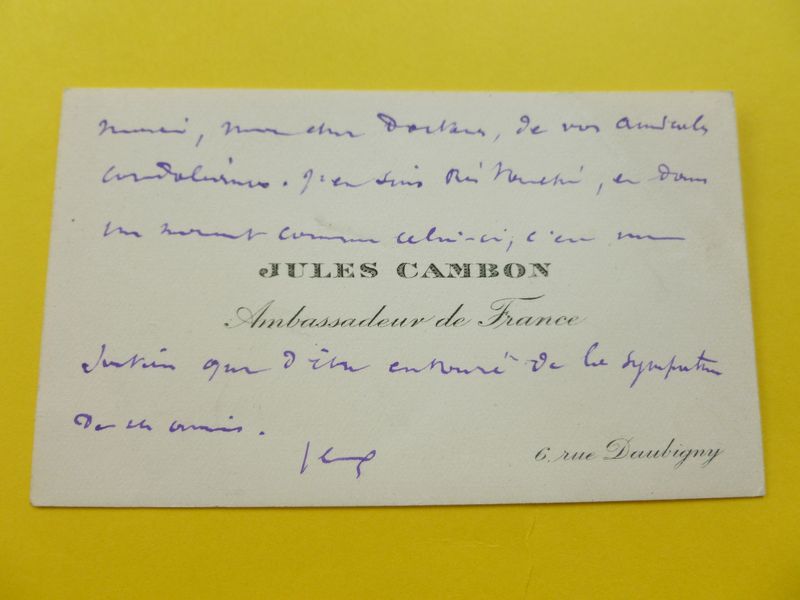 merci, mon cher Docteur, de vos amicales
condoléances. J'en suis très touché, et dans
un moment comme celui-ci, c'est un
JULES CAMBON
Ambassadeur de France
soutien que d'être entouré de la sympathie
de ses amis.
6, rue Daubigny